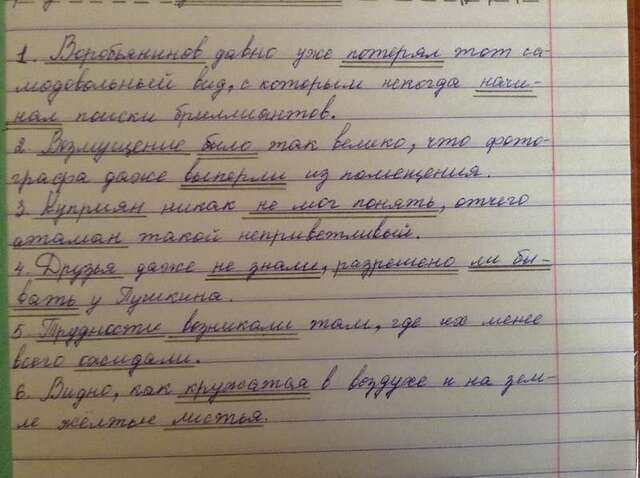 1. Воробьянинов давно уже потерял тот са-
модовольный вид, с которым некогда начи-
нал поиски бриллиантов.
2. Возмущение было так велико, что фото-
графа даже выперли из помещения.
3. Куприян никак не мог понять, отчего
атаман такой неприветливый.
4. Друзья даже не знали, разрешено ли бы-
вать у Пушкина.
5. Трудности возникали там, где их менее
всего ожидали.
6. Видно, как кружатья в воздухе и на зем-
ле жёлтые листья.